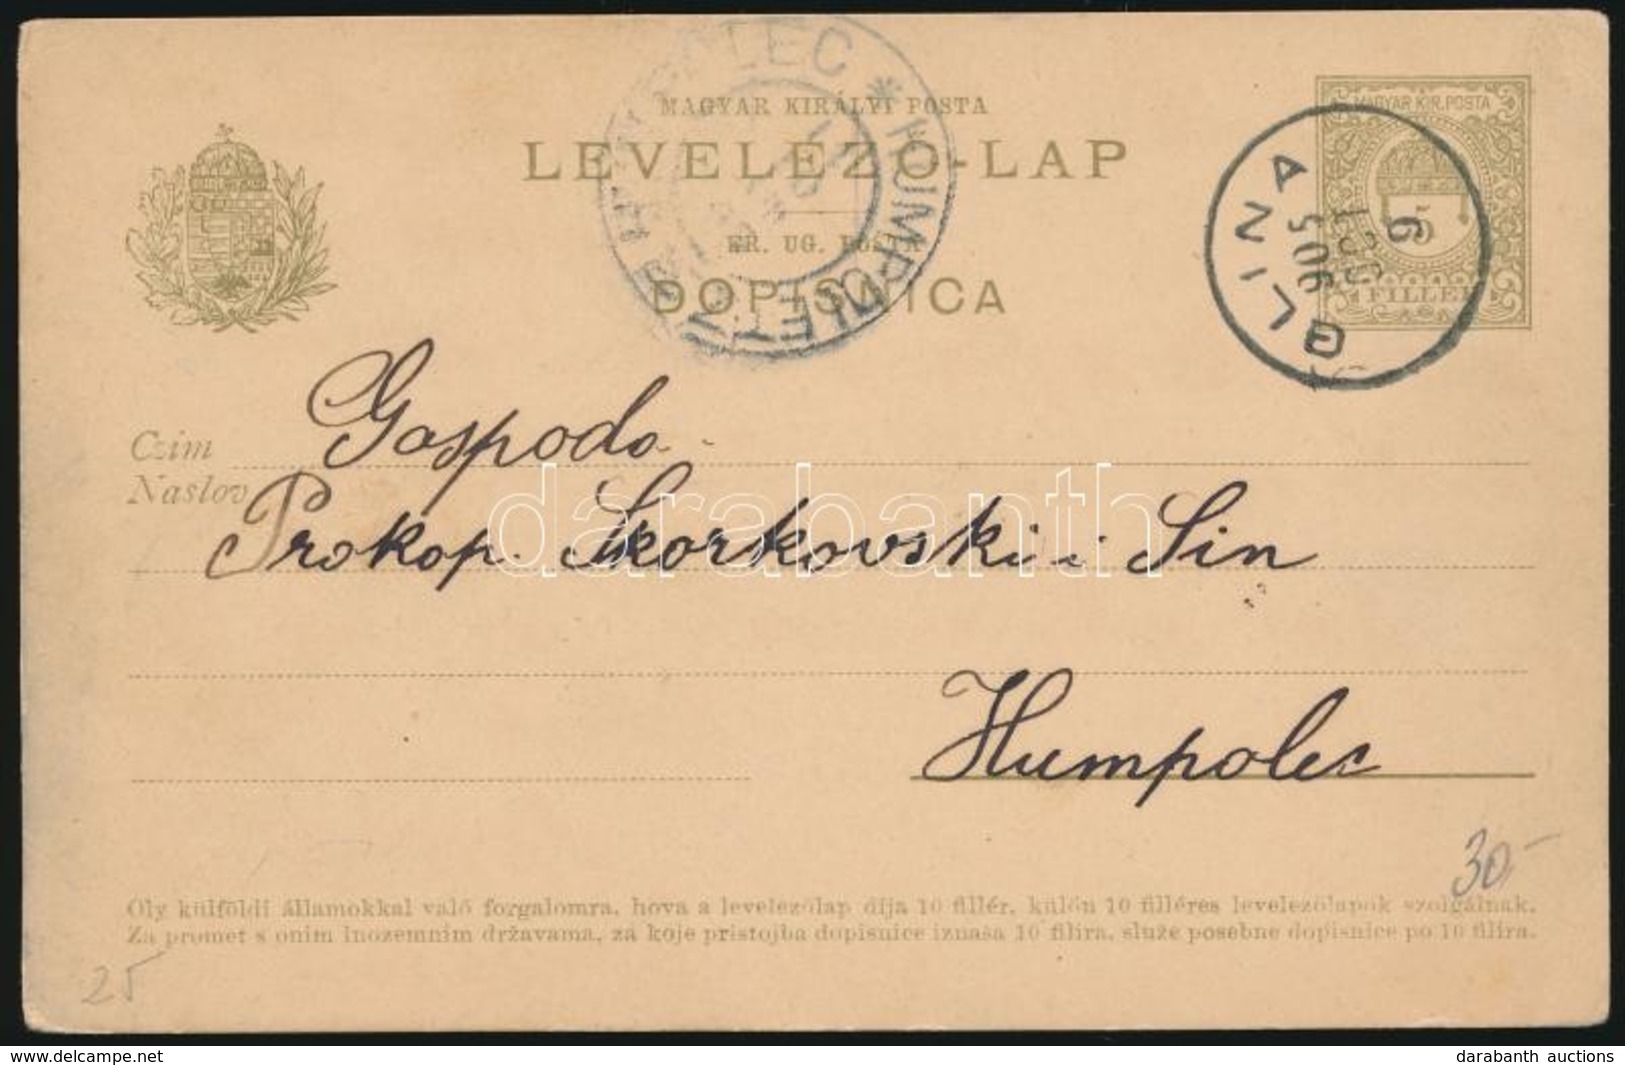 MAGYAR KIRÁLYI POSTA
LEVELEZŐ-LAP
KR. UG. POSTA
DOPISNICA
MAGYAR KIR. POSTA
5
FILLÉR
GLINA
905
6
HUMPOLEC * HUMPOLETZ
Czim
Naslov
Gospoda
Prokop Skorkovski i Sin
Humpolec
darabanth
30-
Oly külföldi államokkal való forgalomra, hova a levelezőlap díja 10 fillér, külön 10 filléres levelezőlapok szolgálnak.
Za promet s onim inozemnim državama, za koje pristojba dopisnice iznaša 10 filira, služe posebne dopisnice po 10 filira.
25
the-stamp-collection.com
darabanth auctions